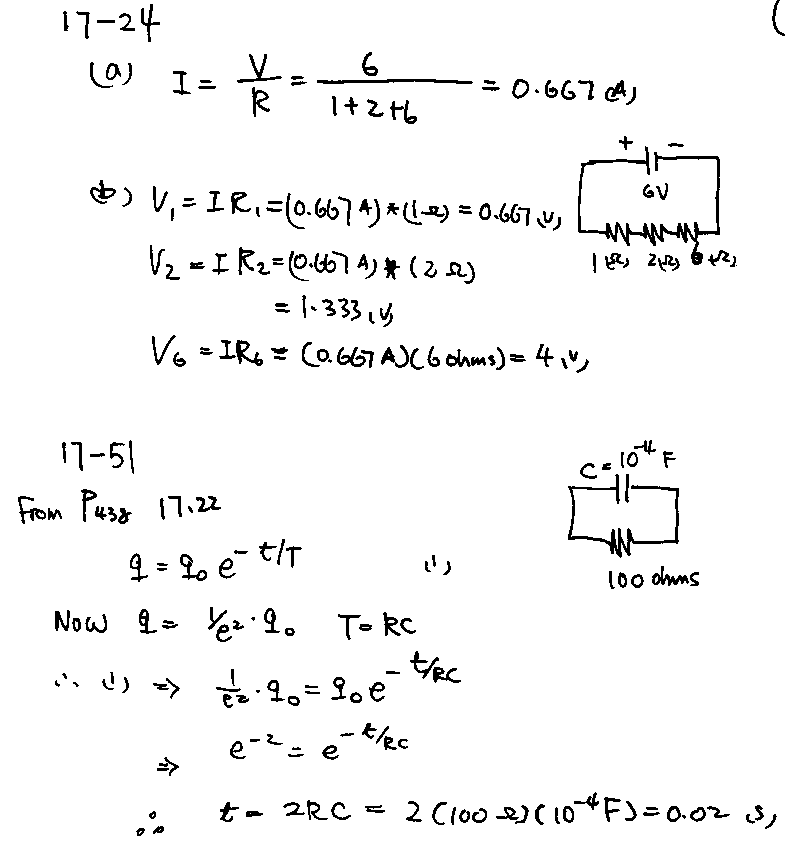 17-24
(a) I = V/R = 6/(1+2+6) = 0.667 (A)
(b) V₁ = IR₁ = (0.667 A)*(1Ω) = 0.667 (V)
V₂ = I R₂ = (0.667 A)*(2Ω)
= 1.333 (V)
V₆ = IR₆ = (0.667 A)(6 ohms) = 4 (V)
+ -
6V
1(Ω) 2(Ω) 6(Ω)
17-51
From P438 17.22
q = q₀ e^(-t/T) (1)
Now q = 1/e² · q₀ T = RC
∴ (1) ⇒ 1/e² · q₀ = q₀ e^(-t/RC)
⇒ e⁻² = e^(-t/RC)
∴ t = 2RC = 2(100Ω)(10⁻⁴F) = 0.02 s,
C = 10⁻⁴ F
100 ohms